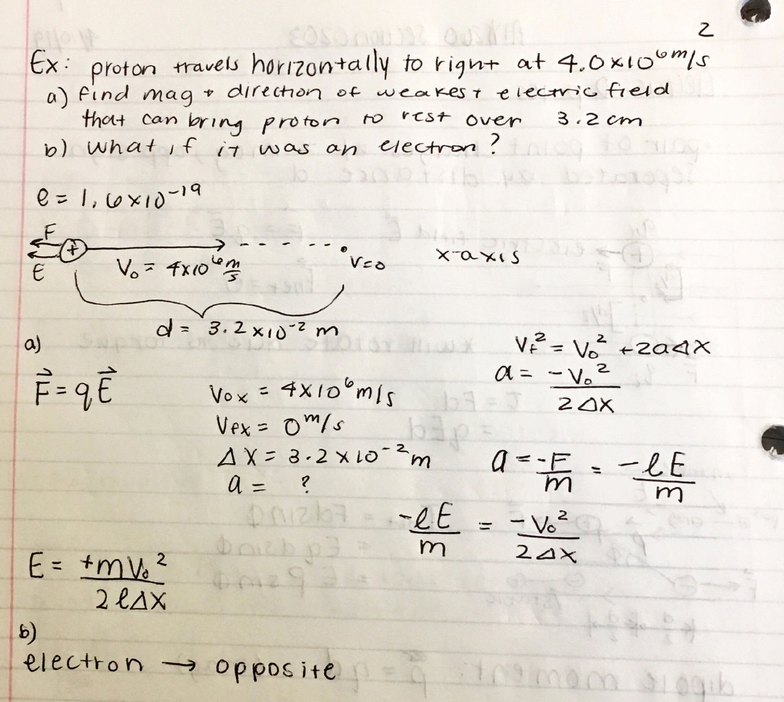 2
Ex: proton travels horizontally to right at 4.0x10⁶m/s
a) find mag + direction of weakest electric field
that can bring proton to rest over 3.2cm
b) what if it was an electron?
e = 1.6x10⁻¹⁹
F
+
E
V₀ = 4x10⁶ m/s
V=0
x-axis
d = 3.2x10⁻² m
a)
F⃗ = qE⃗
V₀x = 4x10⁶ m/s
Vfx = 0 m/s
Δx = 3.2x10⁻² m
a = ?
Vf² = V₀² + 2aΔx
a = -V₀² / 2Δx
a = -F/m = -eE/m
-eE/m = -V₀² / 2Δx
E = +mV₀² / 2eΔx
b)
electron → opposite